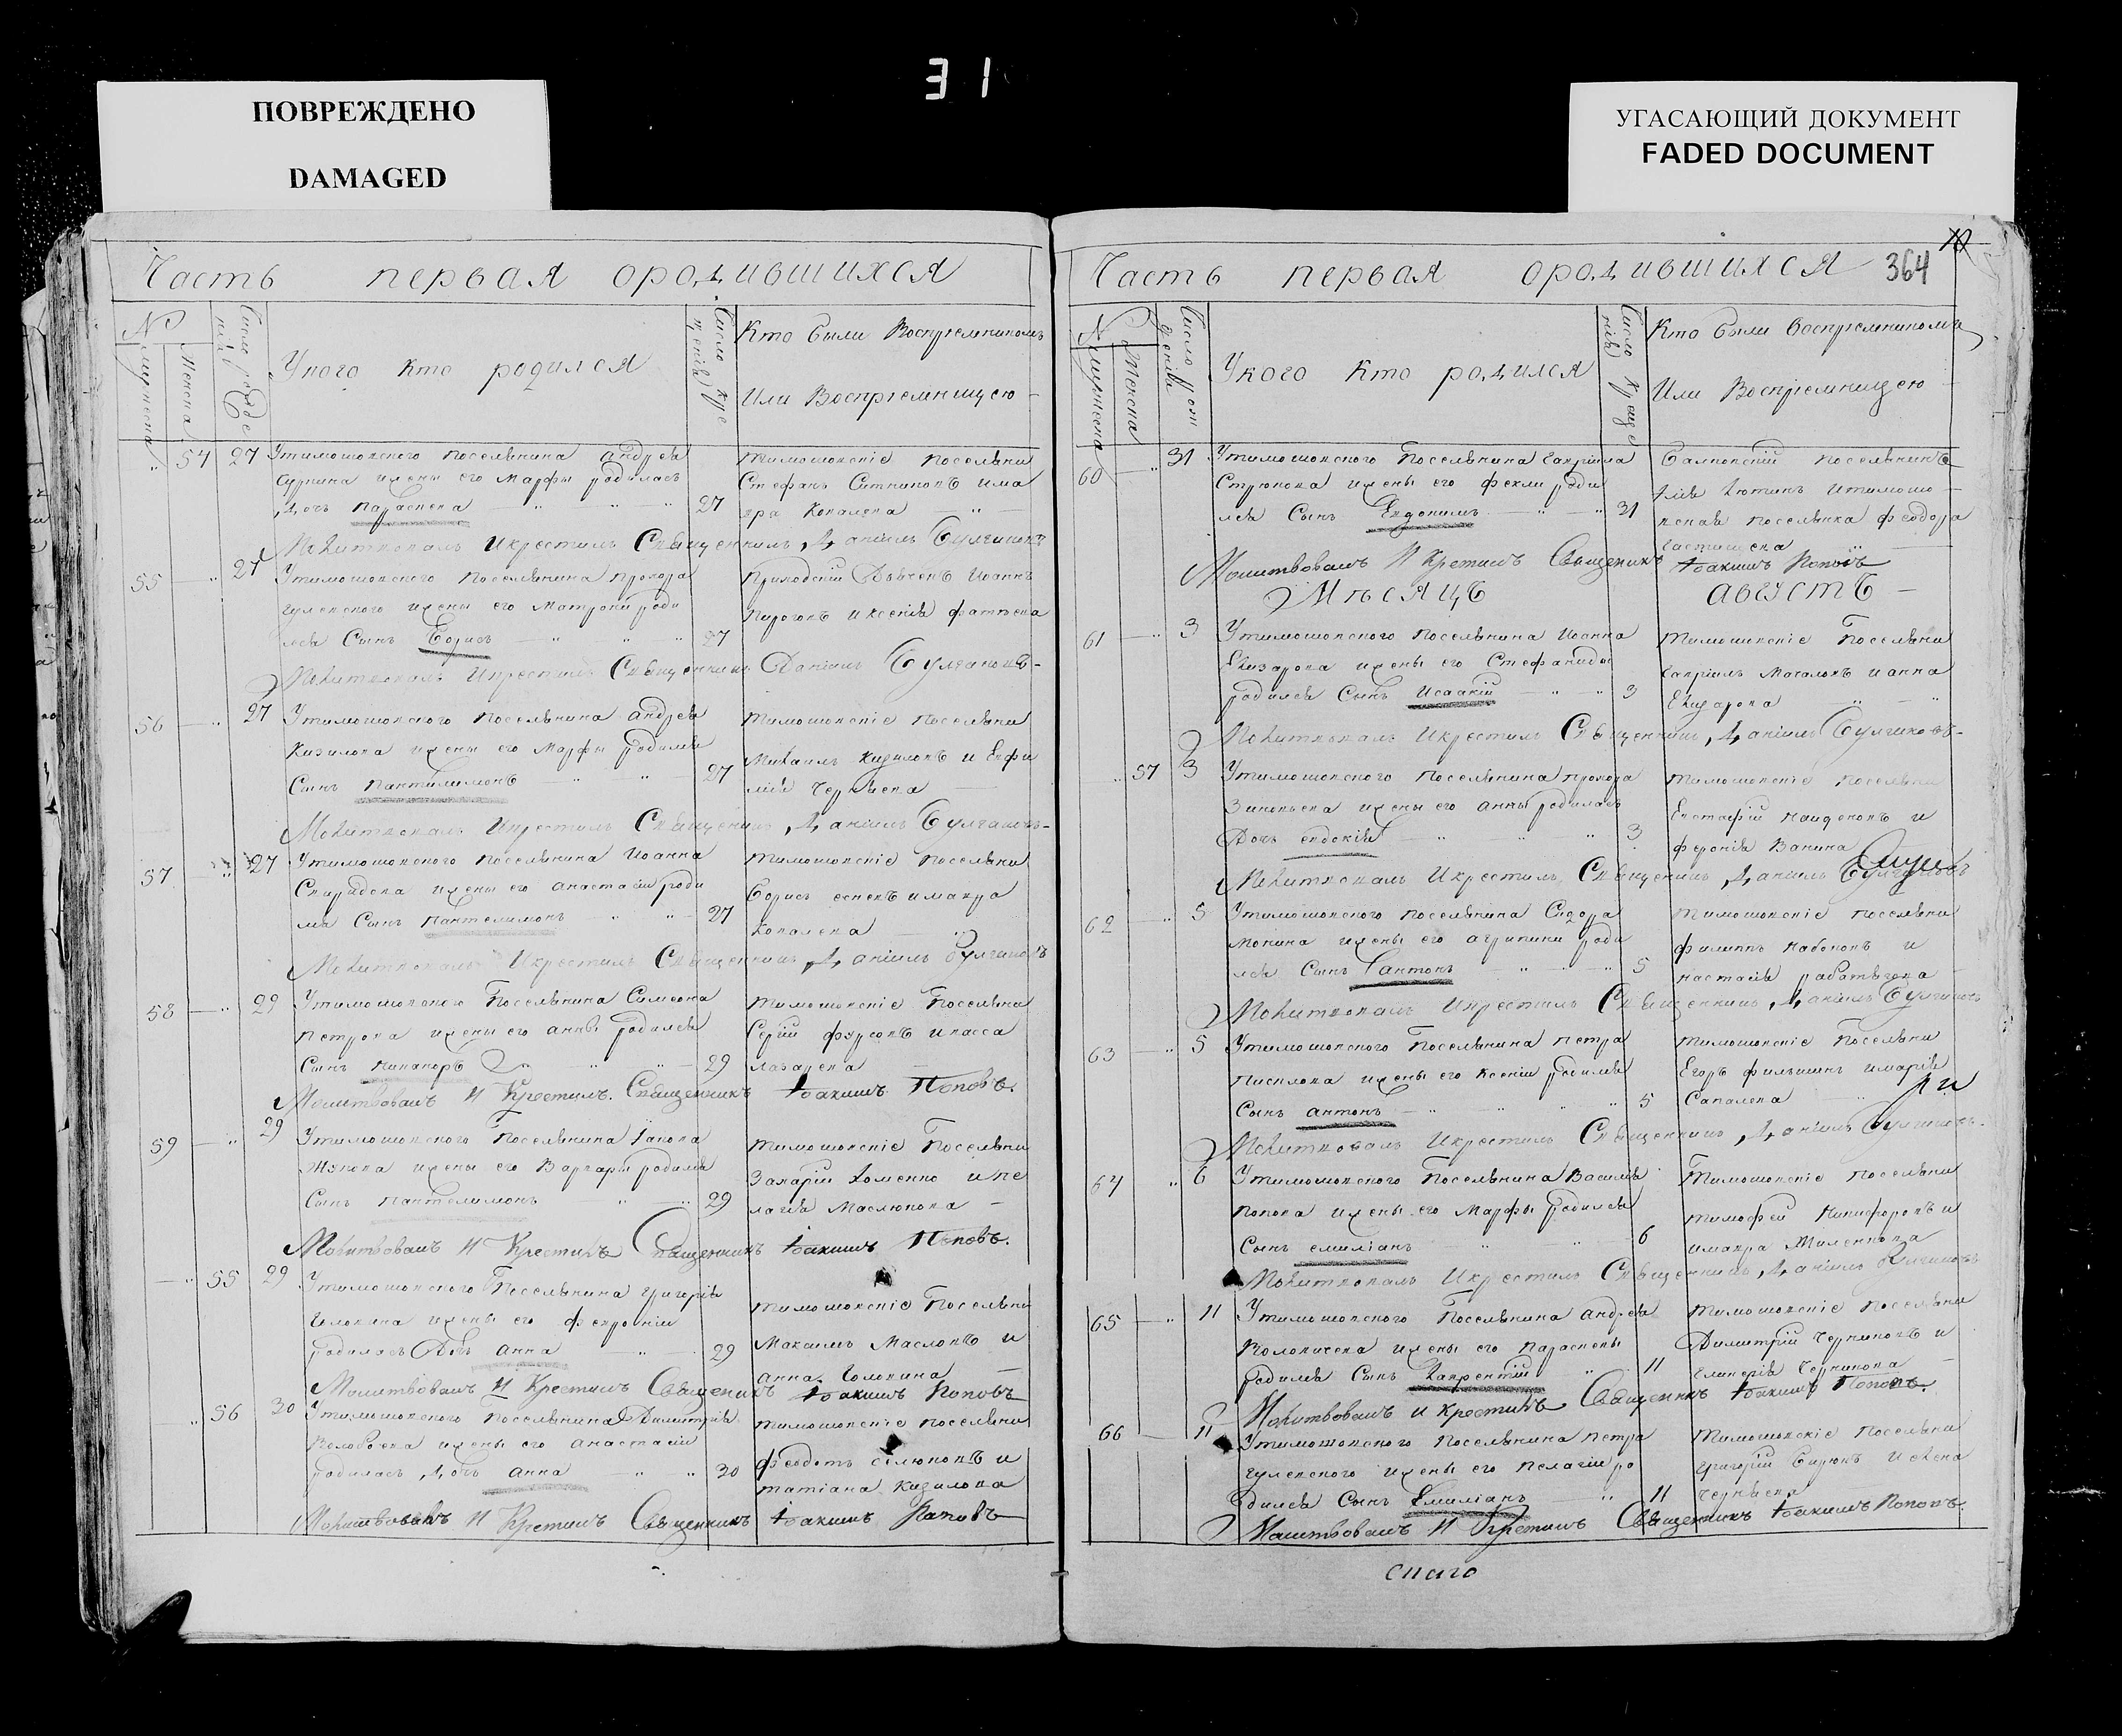 31
ПОВРЕЖДЕНО
DAMAGED
УГАСАЮЩИЙ ДОКУМЕНТ
FADED DOCUMENT
Часть первая ородившихся
№ мужеска
Женска
Число рожде
Укого кто родился
Число кре
щенія
Кто были Воспріемникомъ
Или Воспріемницею
54 27 Утимошовского поселянина андрея
жены его Марфы родилась
дочь параскева 27
тимошовскіе поселяни
Стефанъ Ситниковъ има
вра Ковалева
Молитвовалъ Икрестилъ Священникъ Даніилъ Булгаковъ
55 27 Утимошовского поселянина прохора
гулевского ижены его Матроны роди
лся Сынъ Борисъ 27
приходскій Дьячекъ Иоаннъ
пироговъ иксенія
Молитвовалъ Икрестилъ Священникъ Даніилъ Булгаковъ
56 27 Утимошовского поселянина андрея
Кизилова ижены его Марфы родился
Сынъ пантилимонъ 27
тимошовскіе поселяни
Михаилъ Кизиловъ и Евфи
мія
Молитвовалъ Икрестилъ Священникъ Даніилъ Булгаковъ
57 27 Утимошовского поселянина Иоанна
ижены его анастасіи роди
лся Сынъ пантелимонъ 27
тимошовскіе поселяни
Борисъ имавра
Ковалева
Молитвовалъ Икрестилъ Священникъ Даніилъ Булгаковъ
58 29 Утимошовского Поселянина Симеона
петрова ижены его анны родился
Сынъ никаноръ 29
тимошовскіе Поселяни
Сергій фурсовъ ивасса
лазарева
Молитвовалъ И Крестилъ Священникъ Іоакимъ Поповъ.
59 29 Утимошовского Поселянина Іакова
Жукова ижены его Варвары родился
Сынъ пантелимонъ 29
тимошовскіе Поселяни
Захарій Хоменко ипе
лагія Маслюкова
Молитвовалъ И Крестилъ Священникъ Іоакимъ Поповъ.
55 29 Утимошовского Поселянина григорія
ижены его февроніи
родилась Дочь анна 29
тимошовскіе Поселяни
Максимъ Масловъ и
анна
Молитвовалъ И Крестилъ Священникъ Іоакимъ Поповъ
56 30 Утимошовского Поселянина Димитрія
ижены его анастасіи
родилась дочь анна 30
тимошовскіе поселяни
феодотъ селюковъ и
татіана Кизилова
Молитвовалъ И Крестилъ Священникъ Іоакимъ Поповъ
Часть первая ородившихся 364
№ мужеска
Женска
Число рож
денія
Укого кто родился
Число креще
нія
Кто были воспріемникомъ
Или Воспріемницею
60 31 Утимошовского Поселянина гавріила
Стрюкова ижены его феклы роди
лся Сынъ Евдокимъ 31
поселянинъ
Илія итимошо
вская поселянка феодора
Молитвовалъ И Крестилъ Священникъ Іоакимъ Поповъ
Мѣсяцъ августъ
61 3 Утимошовского поселянина Иоанна
Елизарова ижены его Стефаниды
родился Сынъ Исаакій 3
тимошовскіе Поселяни
гавріилъ и анна
Елизарова
Молитвовалъ Икрестилъ Священникъ Даніилъ Булгаковъ
57 3 Утимошовского поселянина прохора
Зиновьева ижены его анны родилась
Дочь евдокія 3
тимошовскіе поселяни
Евстафій найденовъ и
февронія Ванина
Молитвовалъ Икрестилъ Священникъ Даніилъ Булгаковъ
62 5 Утимошовского поселянина Сидора
ижены его агрипины роди
лся Сынъ антонъ 5
тимошовскіе поселяни
филиппъ набоковъ и
настасія
Молитвовалъ Икрестилъ Священникъ Даніилъ Булгаковъ
63 5 Утимошовского Поселянина петра
ижены его Ксеніи родился
Сынъ антонъ 5
тимошовскіе Поселяни
Егоръ имарія
Молитвовалъ Икрестилъ Священникъ Даніилъ Булгаковъ
64 6 Утимошовского Поселянина Василія
попова ижены его Марфы родился
Сынъ емиліанъ 6
Тимошовскіе поселяни
тимофей Никифоровъ и
имавра
Молитвовалъ Икрестилъ Священникъ Даніилъ Булгаковъ
65 11 Утимошовского Поселянина андрея
ижены его параскевы
родился Сынъ Лаврентій 11
тимошовскіе поселяни
Димитрій Черниковъ и
гликерія Черникова
Молитвовалъ и крестилъ Священникъ Іоакимъ Поповъ.
66 11 Утимошовского Поселянина петра
гулевского ижены его пелагіи ро
дился Сынъ Емиліанъ 11
тимошовскіе поселяни
григорій Бирюкъ иелена
Молитвовалъ И Крестилъ Священникъ Іоакимъ Поповъ.